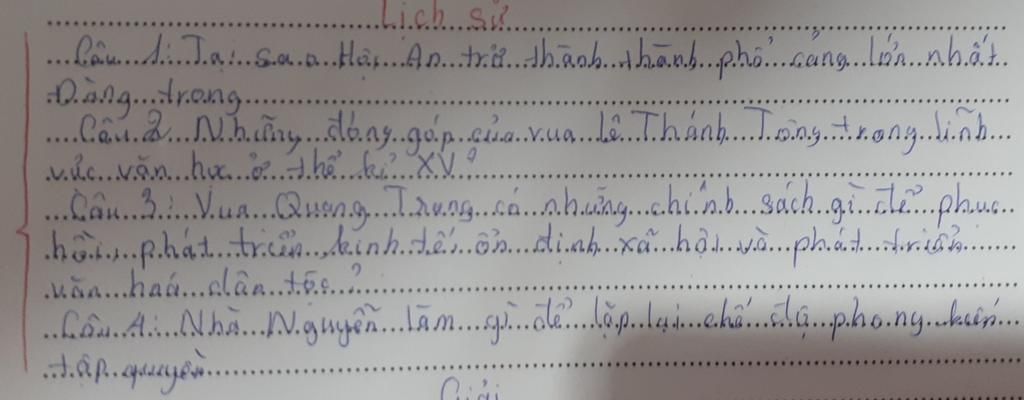 Lịch sử
Câu 1: Tại sao Hội An trở thành thành phố cảng lớn nhất
Đàng trong
Câu 2 Những đóng góp của vua Lê Thánh Tông trong lĩnh
vực văn học ở thế kỉ XV?
Câu 3: Vua Quang Trung có những chính sách gì để phục
hồi, phát triển kinh tế, ổn định xã hội và phát triển
văn hoá dân tộc?
Câu 4: Nhà Nguyễn làm gì để lập lại chế độ phong kiến
tập quyền
Giải